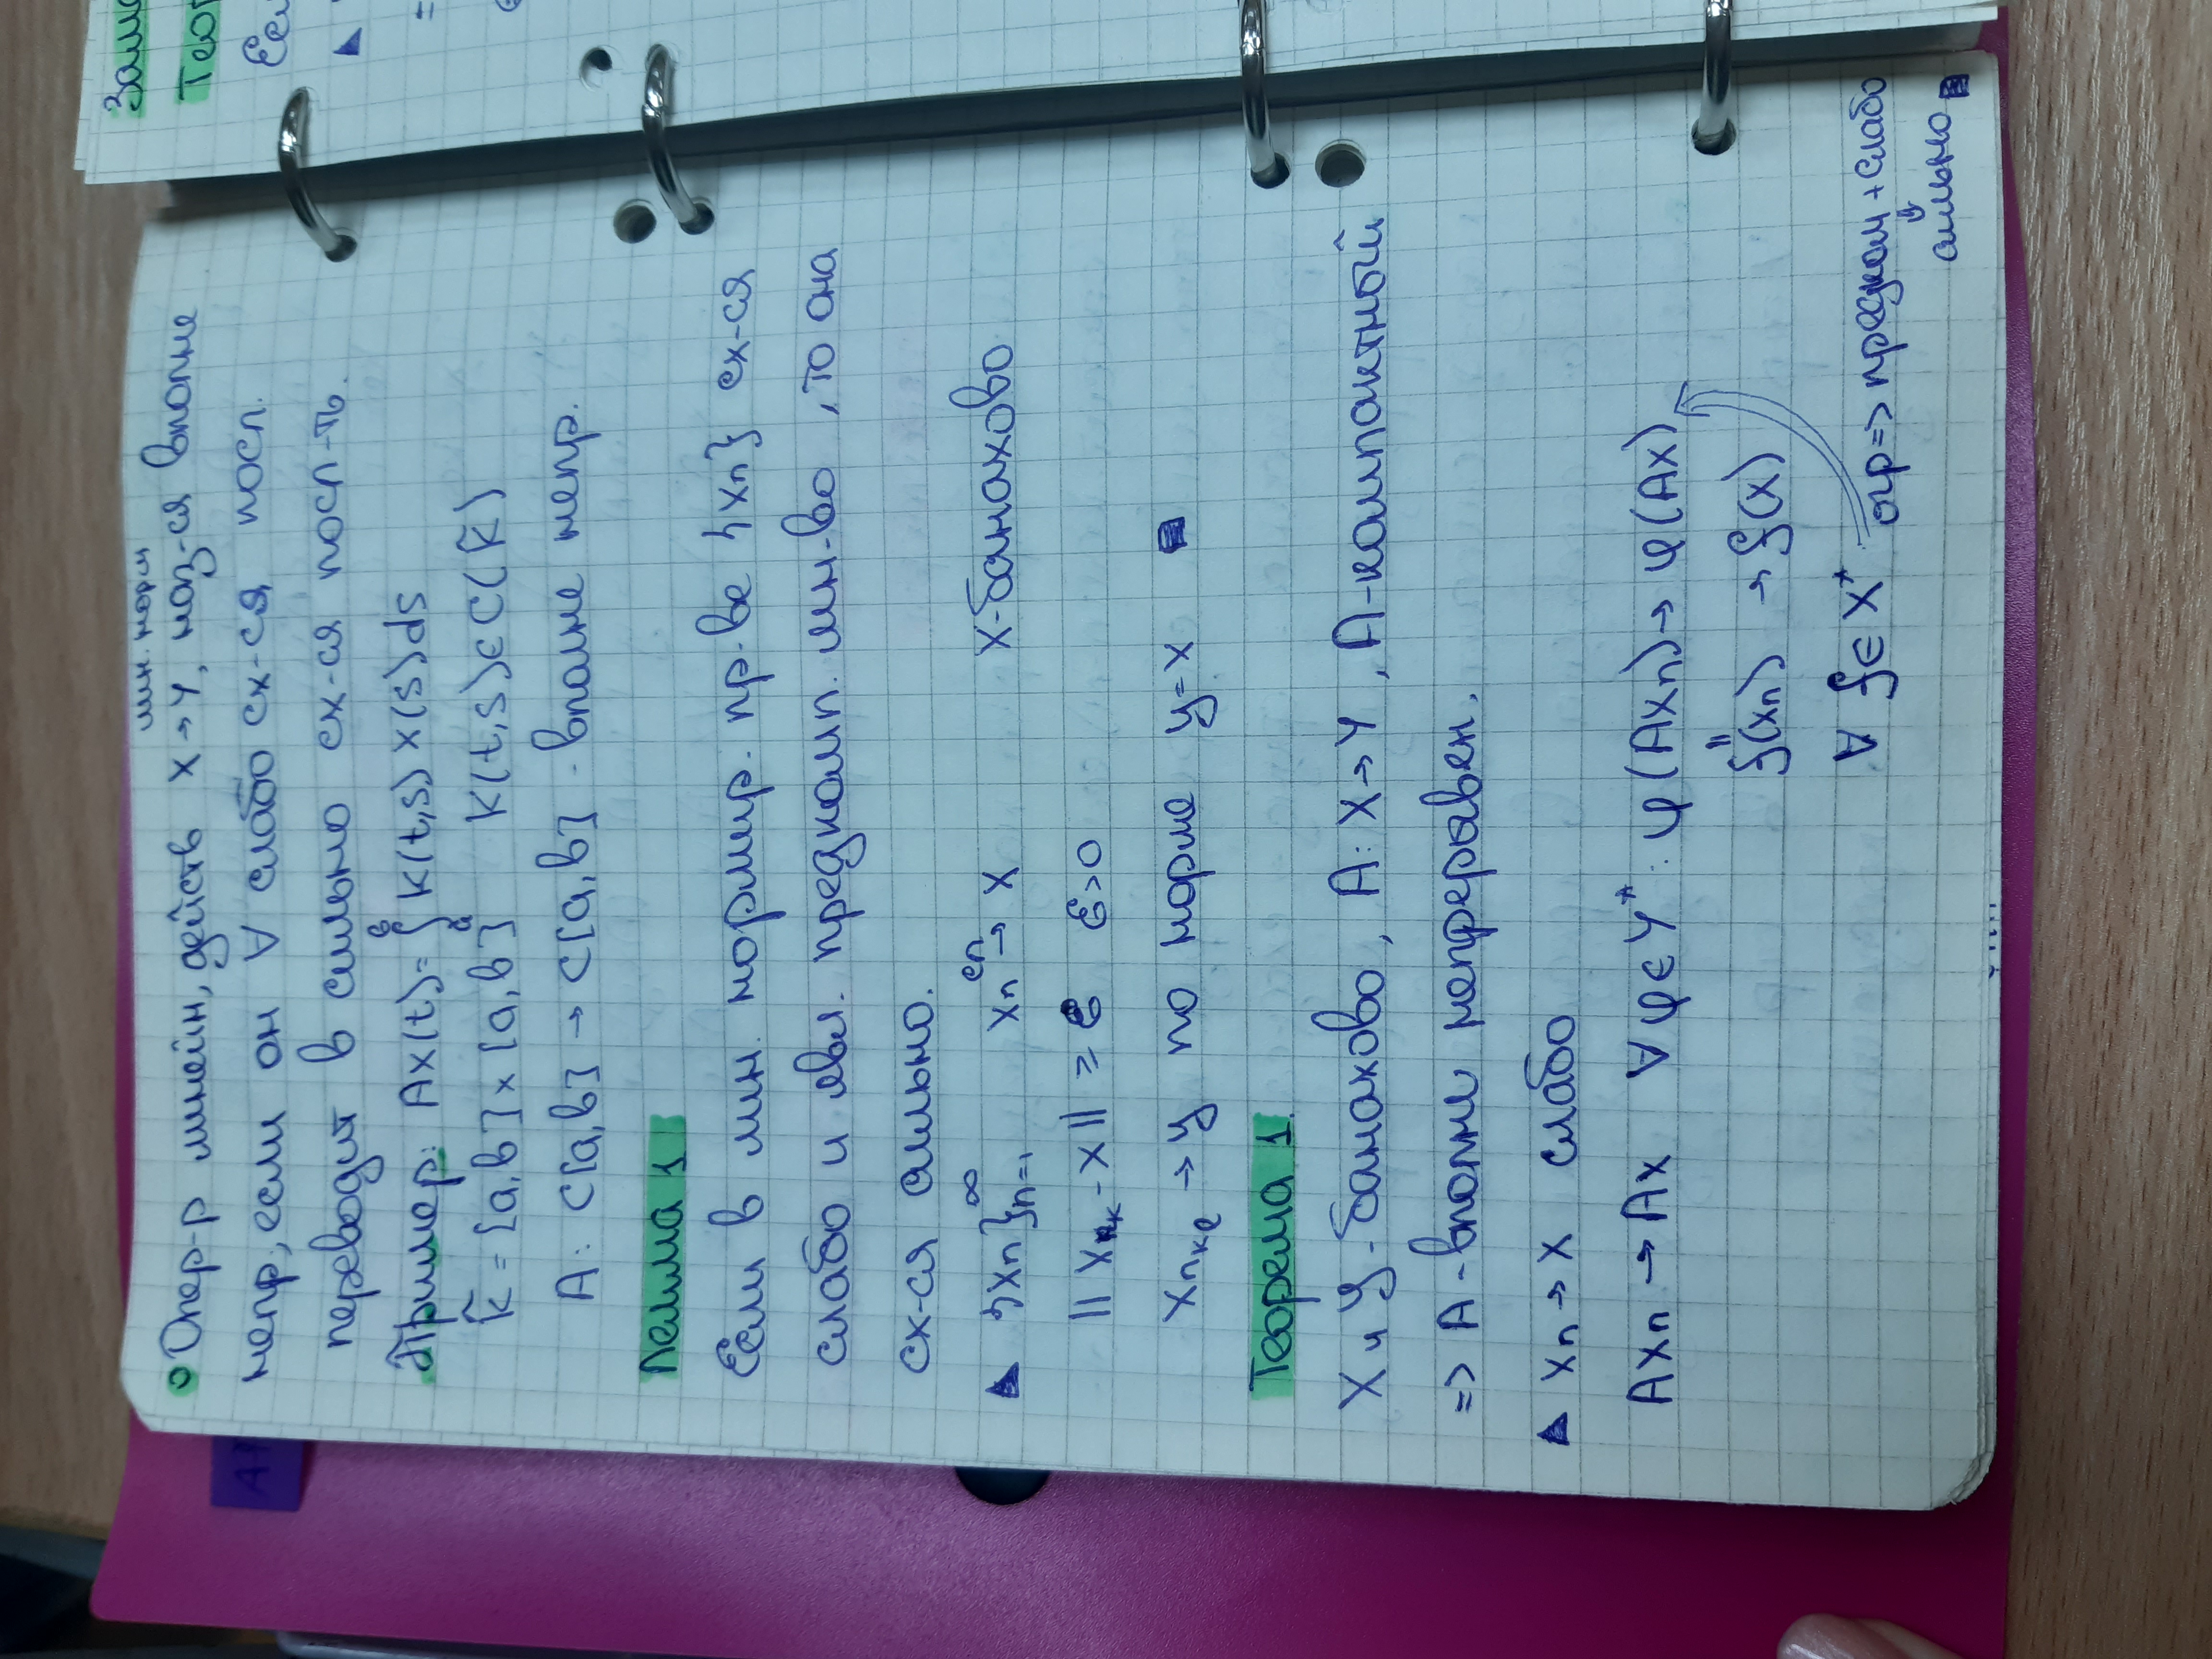 лин. норм
Опер-р линейн, действ X → Y, наз-ся вполне
непр, если он ∀ слабо сх-ся посл.
переводит в сильно сх-ся посл-ть.
Пример: Ax(t)= ∫ₐᵇ K(t,s) x(s)ds
K̃ = [a,b] x [a,b] K(t,s) ∈ C(K̃)
A: C[a,b] → C[a,b] - вполне непр.
Лемма 1
Если в лин. нормир. пр-ве {xn} сх-ся
слабо и явл. предкомп. мн-во, то она
сх-ся сильно.
▲ {xn}ₙ₌₁^∞ xn →^сл x X-банахово
|| xnk - x || ≥ ε ε>0
xnkl → y по норме y=x ■
Теорема 1
X и Y - банахово, A: X → Y, A-компактный
=> A - вполне непрерывен.
▲ xn → x слабо
Axn → Ax ∀ φ ∈ Y* : φ(Axn) → φ(Ax)
f(xn) → f(x)
∀ f ∈ X* огр => предком + слабо
⇓
сильно ■
Зам
Теор
Есл
▲
=